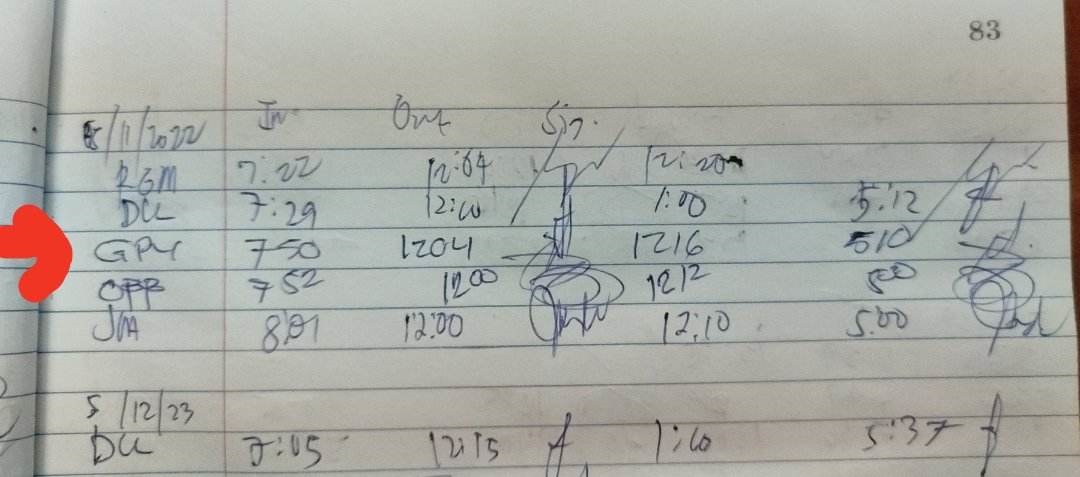 83
5/11/2022 In Out Sin.
RGM 7:22 12:04 12:20
DU 7:29 12:10 1:00 5:12
GPY 750 1204 1216 510
OPP 752 1200 1212 500
JMA 8:01 12:00 12:10 5:00
5/12/23
DU 7:05 12:15 1:10 5:37